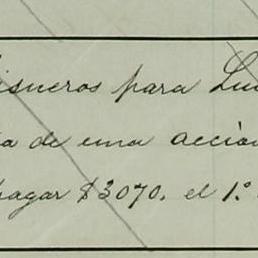 isneros para Lui
a de una acción
pagar $3070. el 1.º